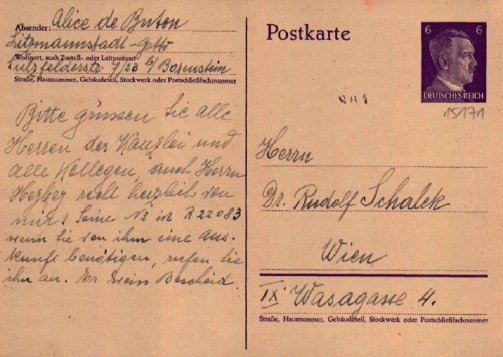 Absender: Alice de Buton
Litzmannstadt-Getto
Wohnort, auch Zustell- oder Leitpostamt
Sulzfelderstr. 7/23 b/ Borenstein
Straße, Hausnummer, Gebäudeteil, Stockwerk oder Postschließfachnummer
Bitte grüssen Sie alle
Herren der Kanzlei und
alle Kollegen, auch Herrn
recht herzlich von
mir! Seine № ist R 22083
wenn Sie von ihm eine Aus-
kunft benötigen, rufen Sie
ihn an. Er weiss Bescheid.
Postkarte
6 6
DEUTSCHES REICH
15171
Herrn
Dr. Rudolf Schalek
Wien
IX Wasagasse 4.
Straße, Hausnummer, Gebäudeteil, Stockwerk oder Postschließfachnummer